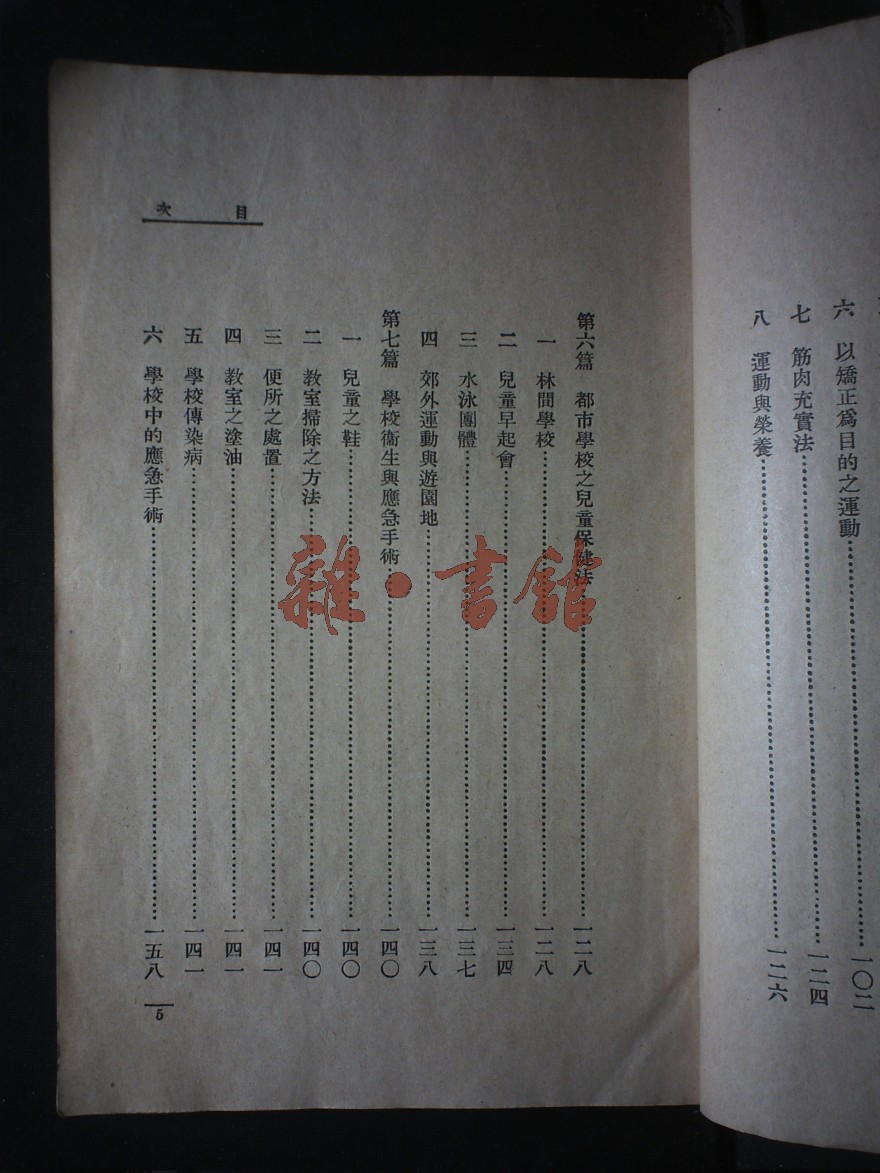 六　以矯正爲目的之運動……一〇二
七　筋肉充實法……一二四
八　運動與榮養……一二六
目次
第六篇　都市學校之兒童保健法……一二八
一　林間學校……一二八
二　兒童早起會……一三四
三　水泳團體……一三七
四　郊外運動與遊園地……一三八
第七篇　學校衞生與應急手術……一四〇
一　兒童之鞋……一四〇
二　教室掃除之方法……一四〇
三　便所之處置……一四一
四　教室之塗油……一四一
五　學校傳染病……一四一
六　學校中的應急手術……一五八
5
雜·書館